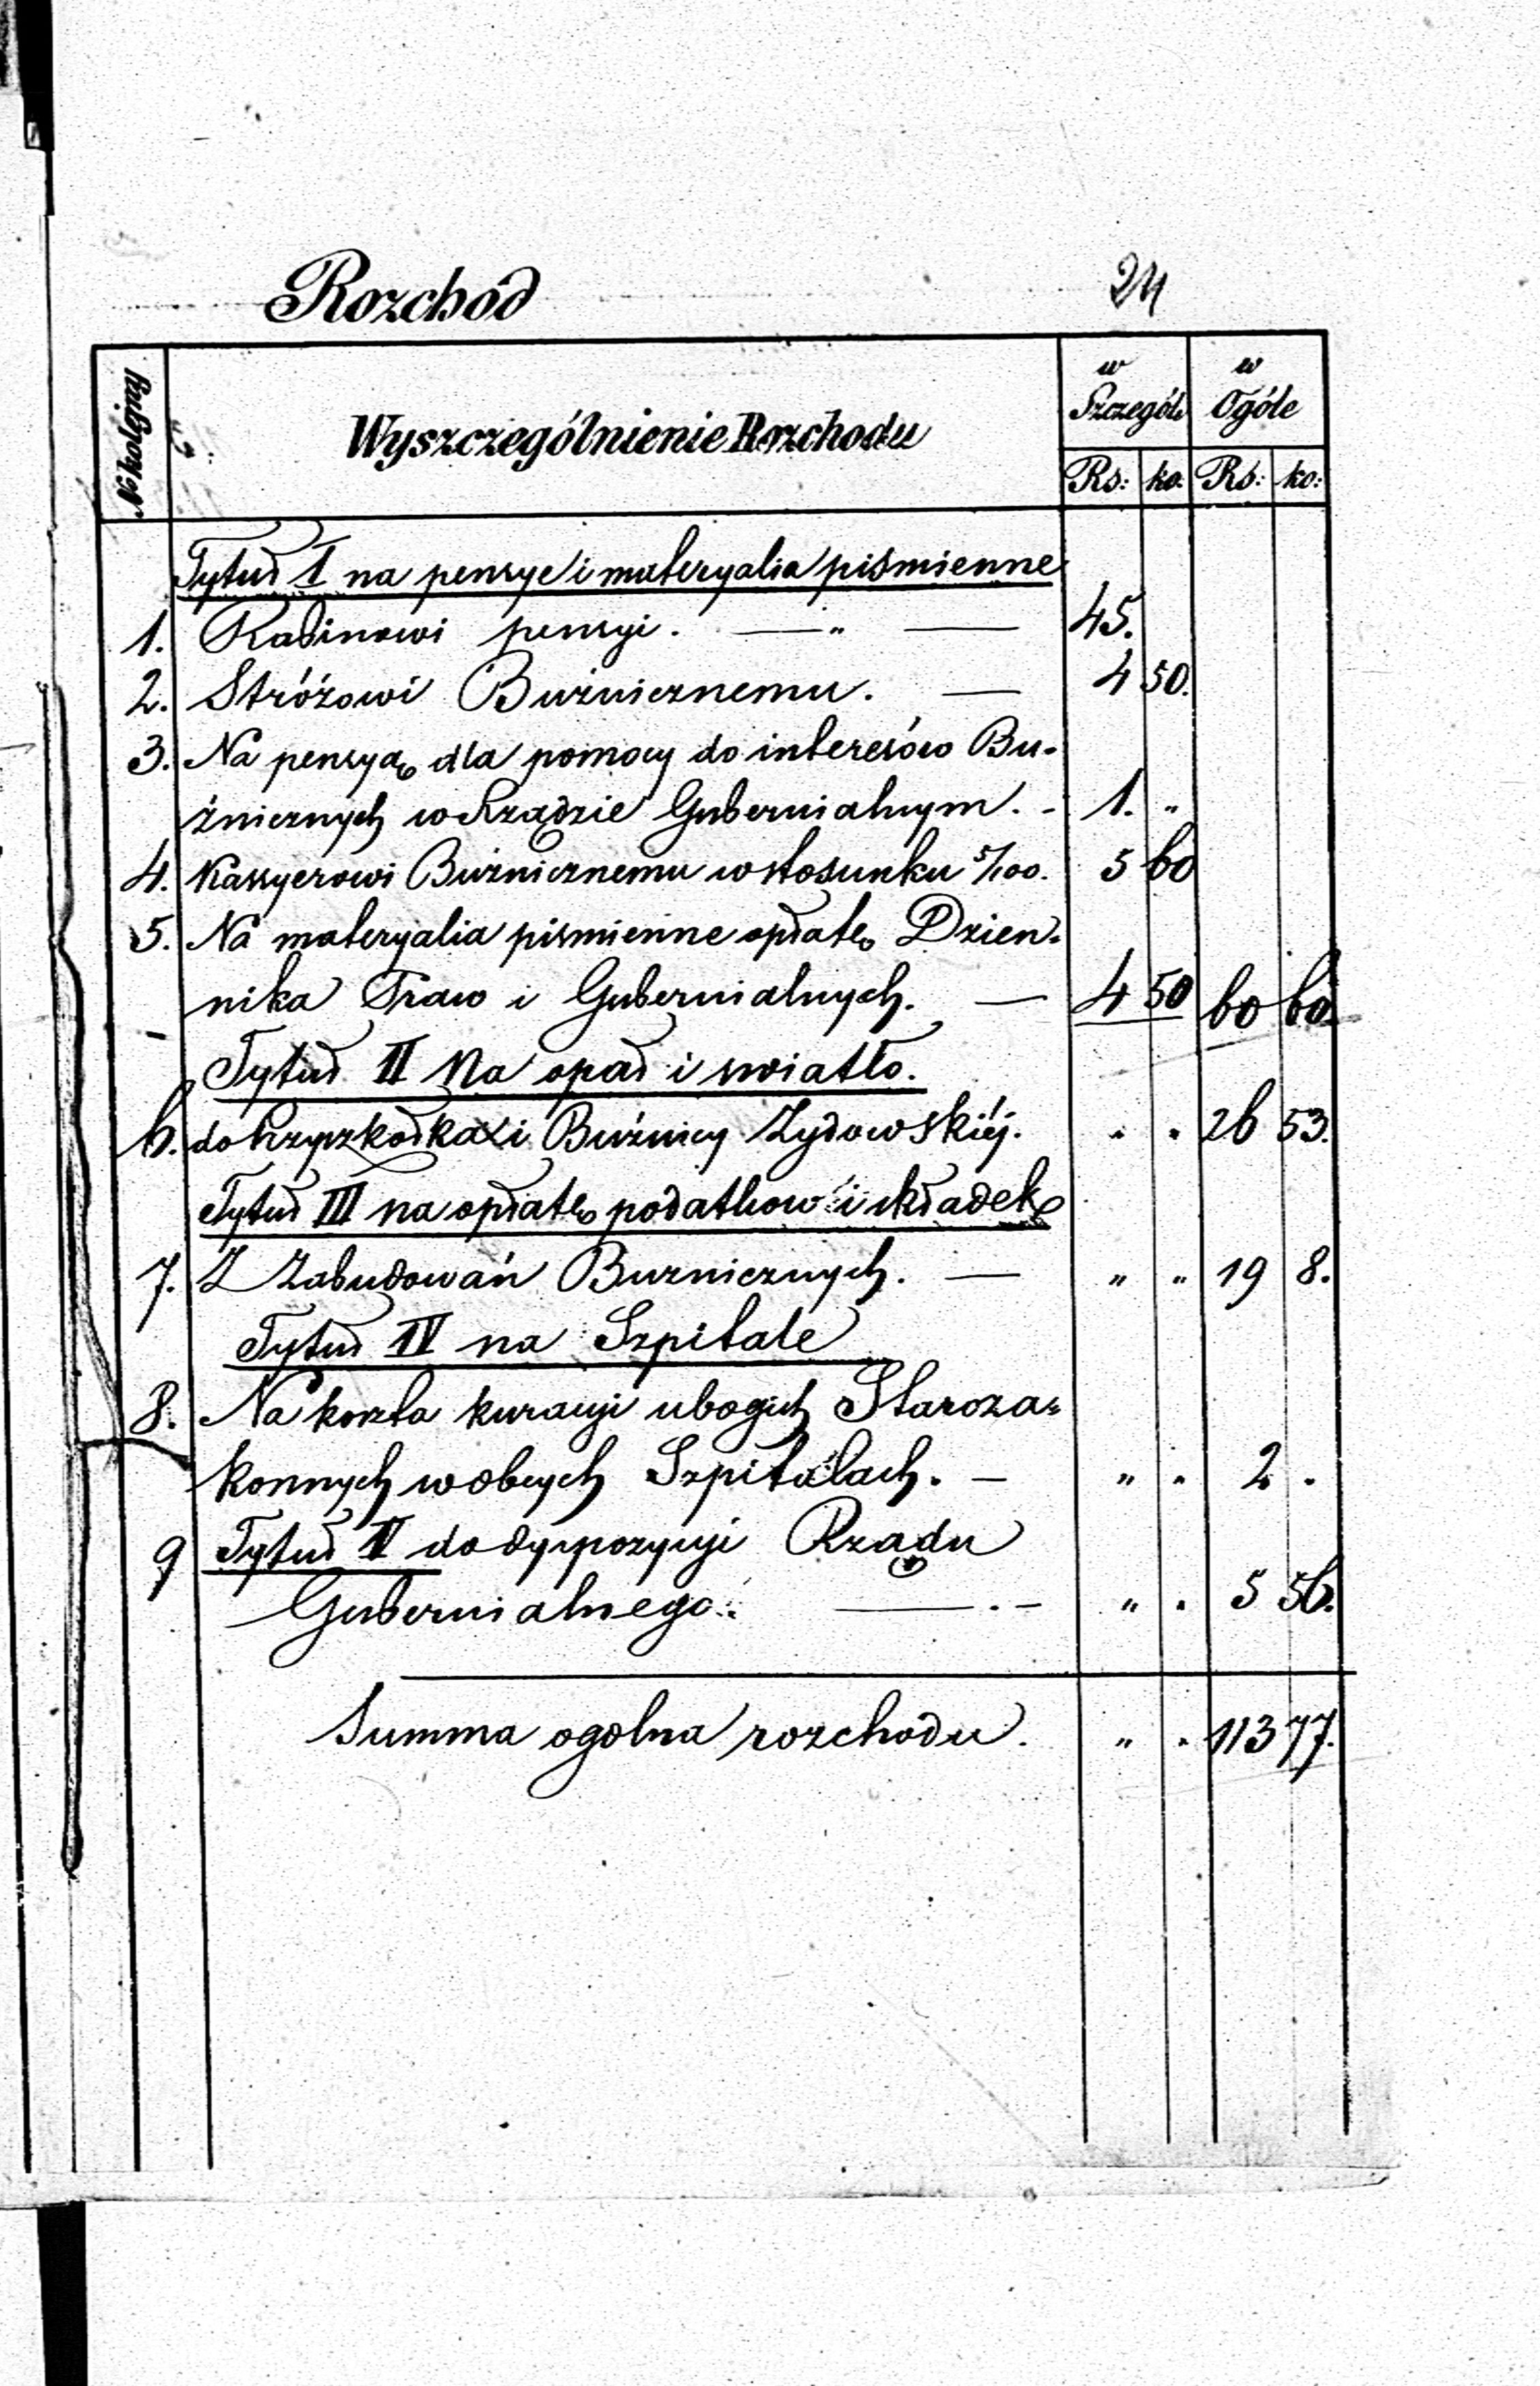 Rozchód 24
№ kolejny Wyszczególnienie Rozchodu w Szczegól. w Ogóle
Rs: ko: Rs: ko:
Tytuł I na pensye i materyalia piśmienne
1. Rabinowi pensyi. — " — 45.
2. Stróżowi Bużnicznemu. — 4 50.
3. Na pensyą dla pomocy do interesów Bu-
żnicznych w Rządzie Gubernialnym. - 1. "
4. Kassyerowi Bużnicznemu w stosunku 5/100. 5 60
5. Na materyalia piśmienne opłatę Dzien-
nika Praw i Gubernialnych. — 4 50 60 60.
Tytuł II Na opał i swiatło.
6. do Przyszkółka i Bużnicy Żydowskiéj. " " 26 53.
Tytuł III na opłatę podatkow i składek
7. Z Zabudowań Buznicznych. — " " 19 8.
Tytuł IV na Szpitale
8. Na koszta kuracyi ubogich Staroza=
konnych w obcych Szpitalach. — " " 2 "
9 Tytuł V do dyspozycyi Rządu
Gubernialnego. — . – " " 5 56.
Summa ogolna rozchodu. " " 113 77.